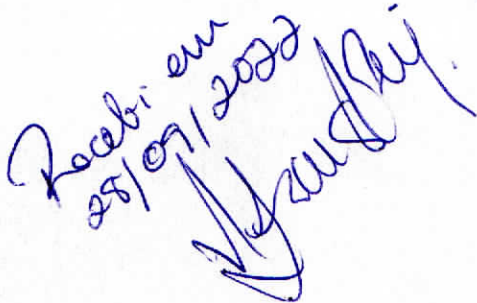 Recebi em
28/09/2022